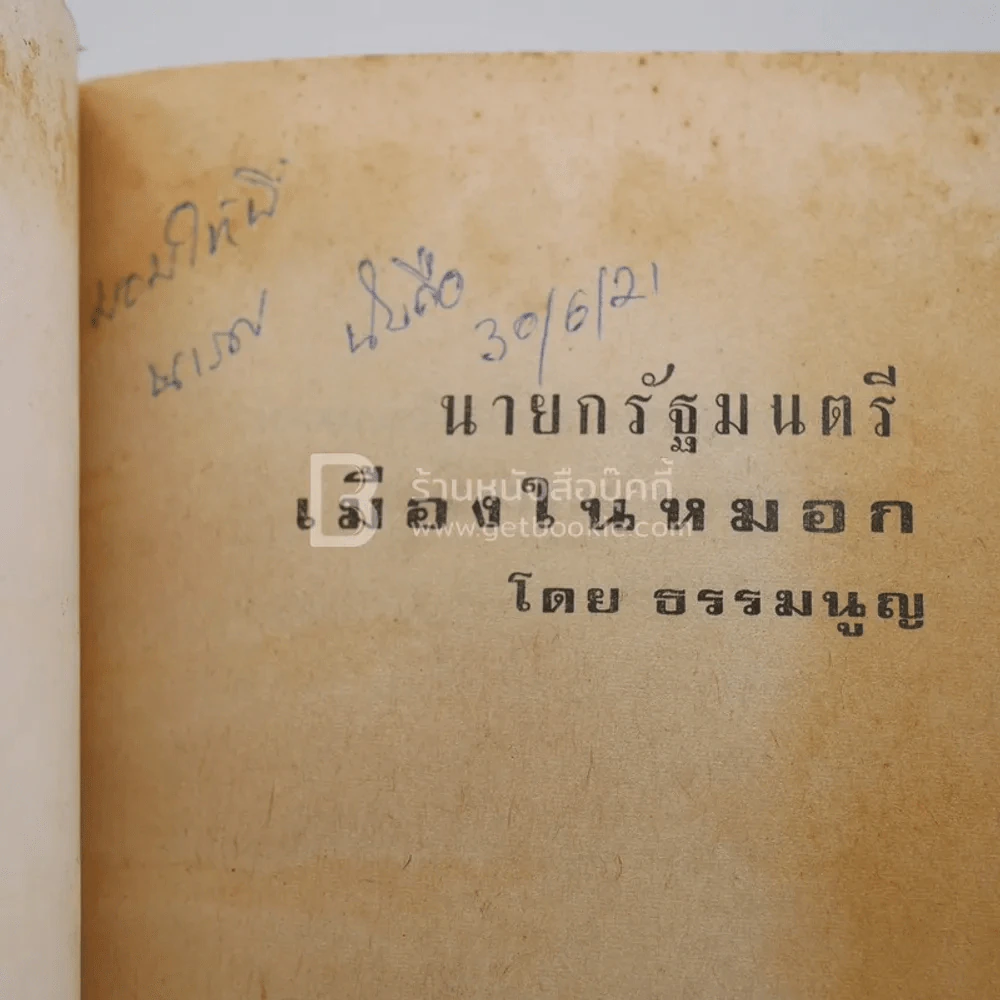 มอบให้พี่
นับถือ 30/6/21
นายกรัฐมนตรี
เมืองในหมอก
โดย ธรรมนูญ
ร้านหนังสือบุ๊คกี้
www.getbookie.com